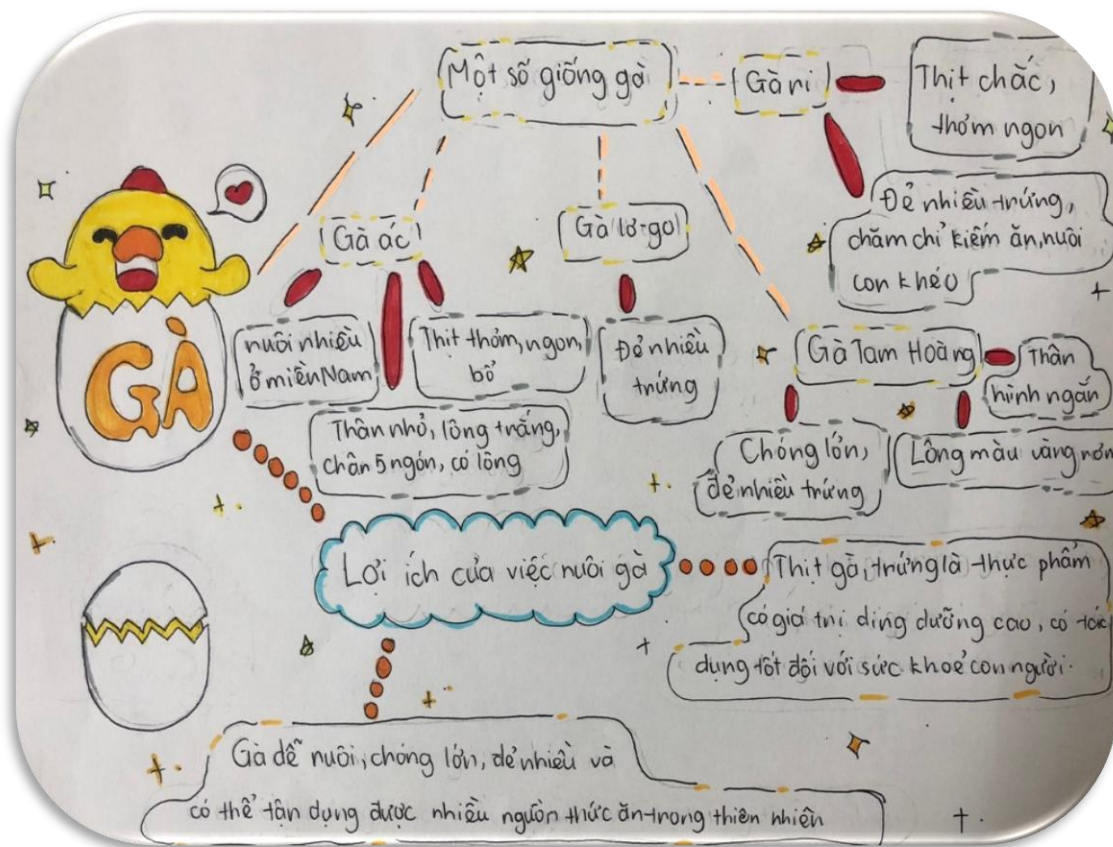 Một số giống gà
Gà ri
Thịt chắc,
thơm ngon
Đẻ nhiều trứng,
chăm chỉ kiếm ăn, nuôi
con khéo
Gà ác
Gà lơ-go
nuôi nhiều
ở miền Nam
Thịt thơm, ngon,
bổ
Thân nhỏ, lông trắng,
chân 5 ngón, có lông
Đẻ nhiều
trứng
Gà Tam Hoàng
Thân
hình ngắn
Chóng lớn,
đẻ nhiều trứng
Lông màu vàng rơm
GÀ
Lợi ích của việc nuôi gà
Thịt gà, trứng là thực phẩm
có giá trị ding dưỡng cao, có tác
dụng tốt đối với sức khoẻ con người.
Gà dễ nuôi, chóng lớn, đẻ nhiều và
có thể tận dụng được nhiều nguồn thức ăn trong thiên nhiên